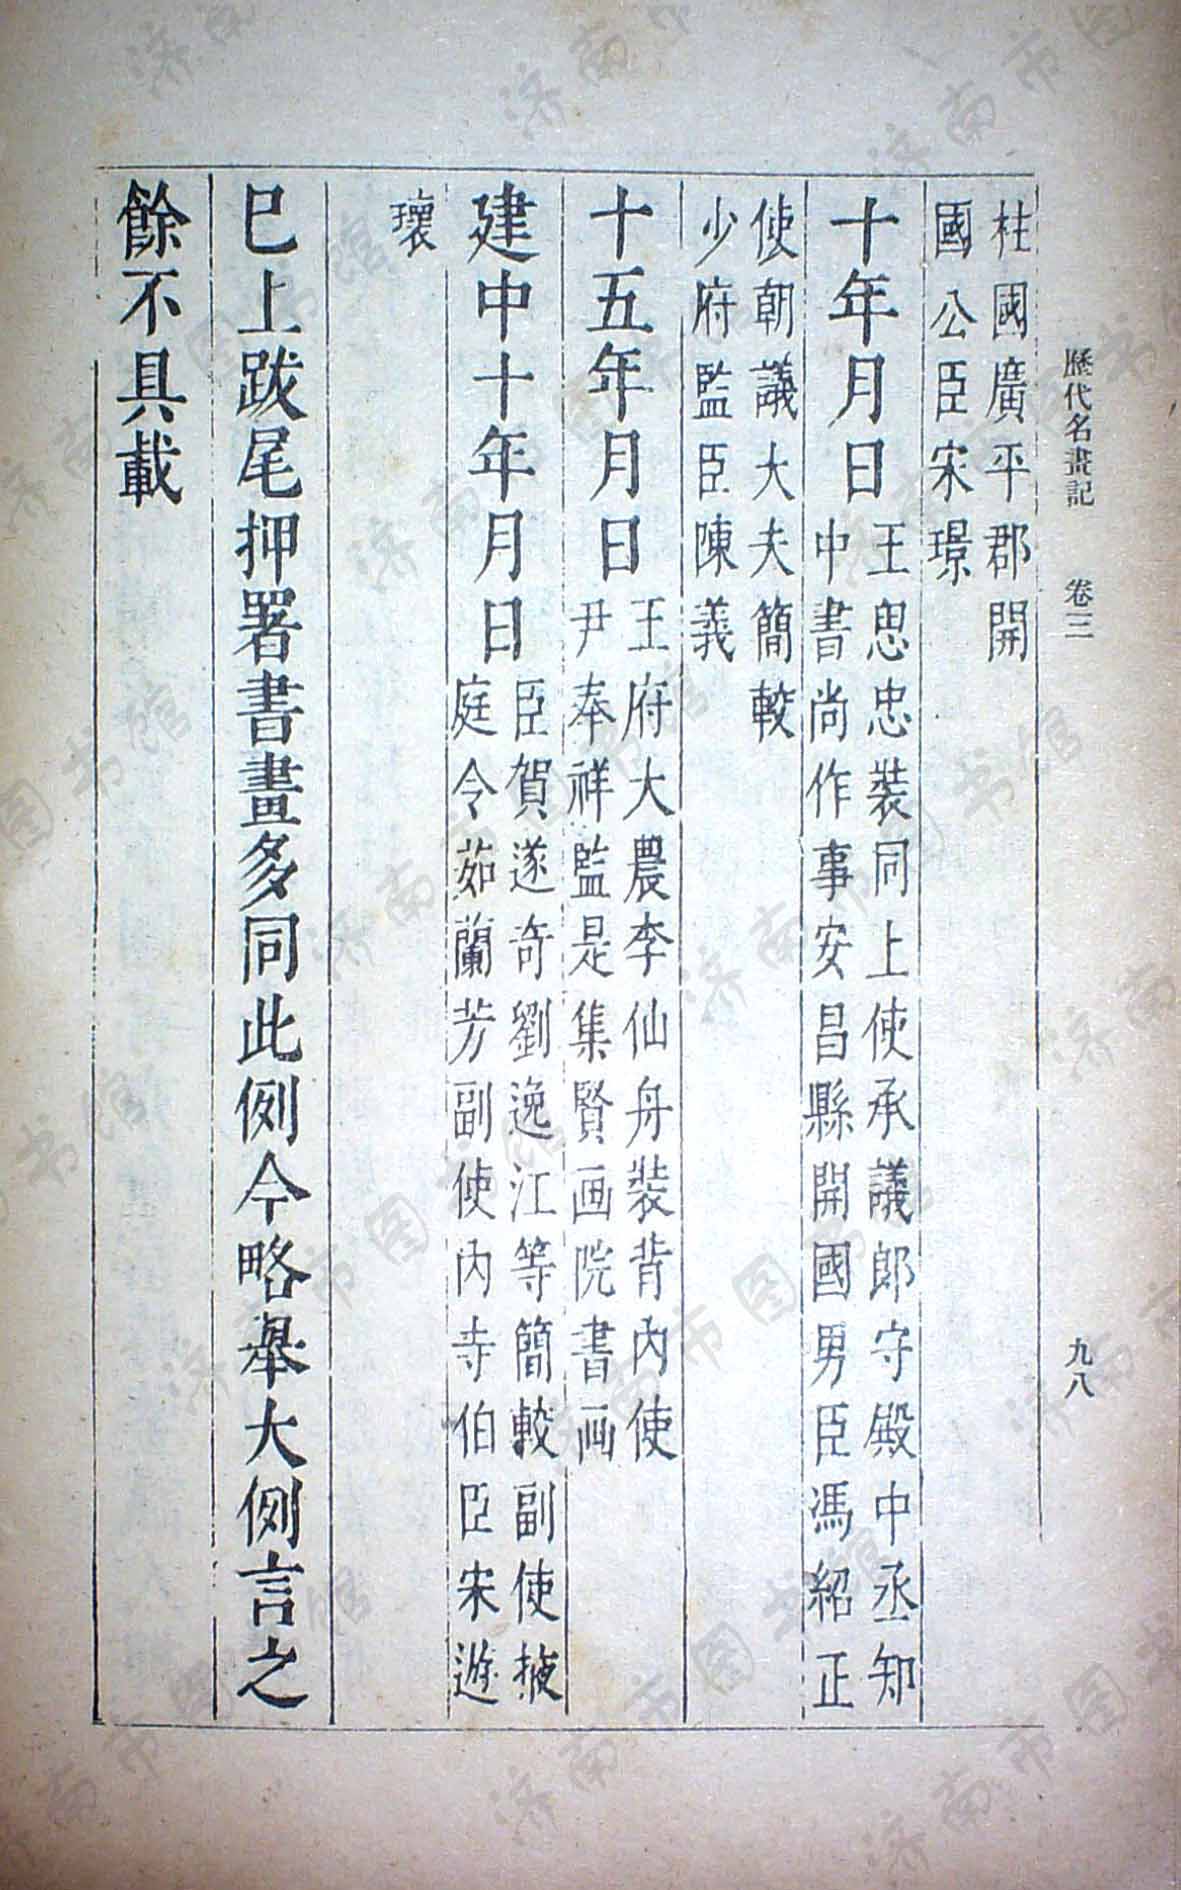 歷代名畫記　卷三　九八
柱國廣平郡開
國公臣宋璟
十年月日
王思忠裝同上使承議郎守殿中丞知
中書尚作事安昌縣開國男臣馮紹正
使朝議大夫簡較
少府監臣陳義
十五年月日
王府大農李仙舟裝背內使
尹奉祥監是集賢画院書画
建中十年月日
臣賀遂奇劉逸江等簡較副使掖
庭令茹蘭芳副使內寺伯臣宋遊
瓌
巳上跋尾押署書畫多同此例今略舉大例言之
餘不具載
济南市图书馆